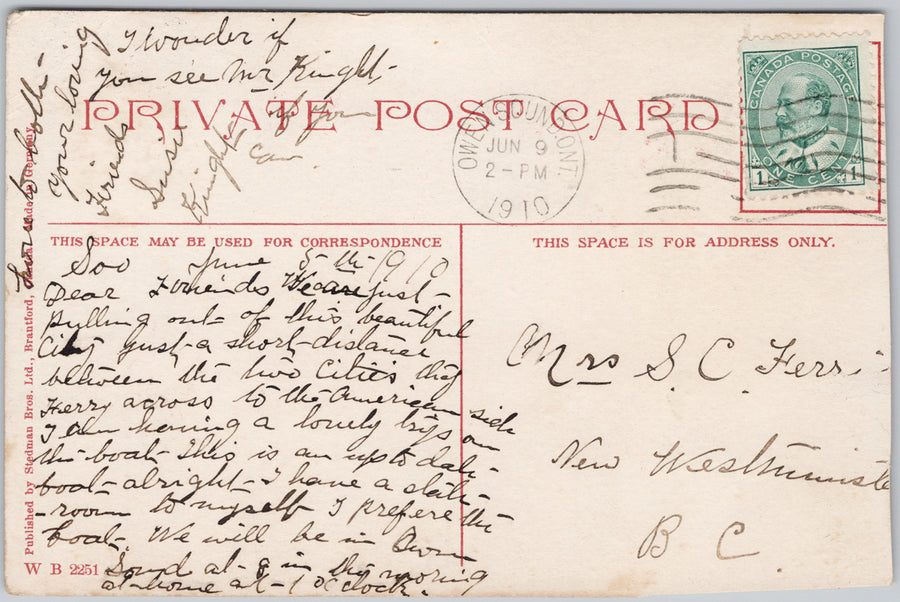 I wonder if
you see Mr Kinght,
if you
can
Love to both
Your loving
Friends
Susie
Kinght
PRIVATE POST CARD
OWEN SOUND, ONT.
JUN 9
2-PM
1910
CANADA POSTAGE
ONE CENT
1 1
THIS SPACE MAY BE USED FOR CORRESPONDENCE
Soo June 8-th-1910
Dear Friends We are just
pulling out of this beautiful
City just a short distance
between the two Cities they
Ferry across to the American side
I am having a lovely trip on
the boat This is an up to date
boat alright I have a state
-room to myself I prefere the
boat. We will be in Owen
Sound at 9 in the moring
at home at 1 o'clock.
THIS SPACE IS FOR ADDRESS ONLY.
Mrs S. C. Ferri
New Westminste
B C
Published by Stedman Bros. Ltd., Brantford,
Germany.
W B 2251